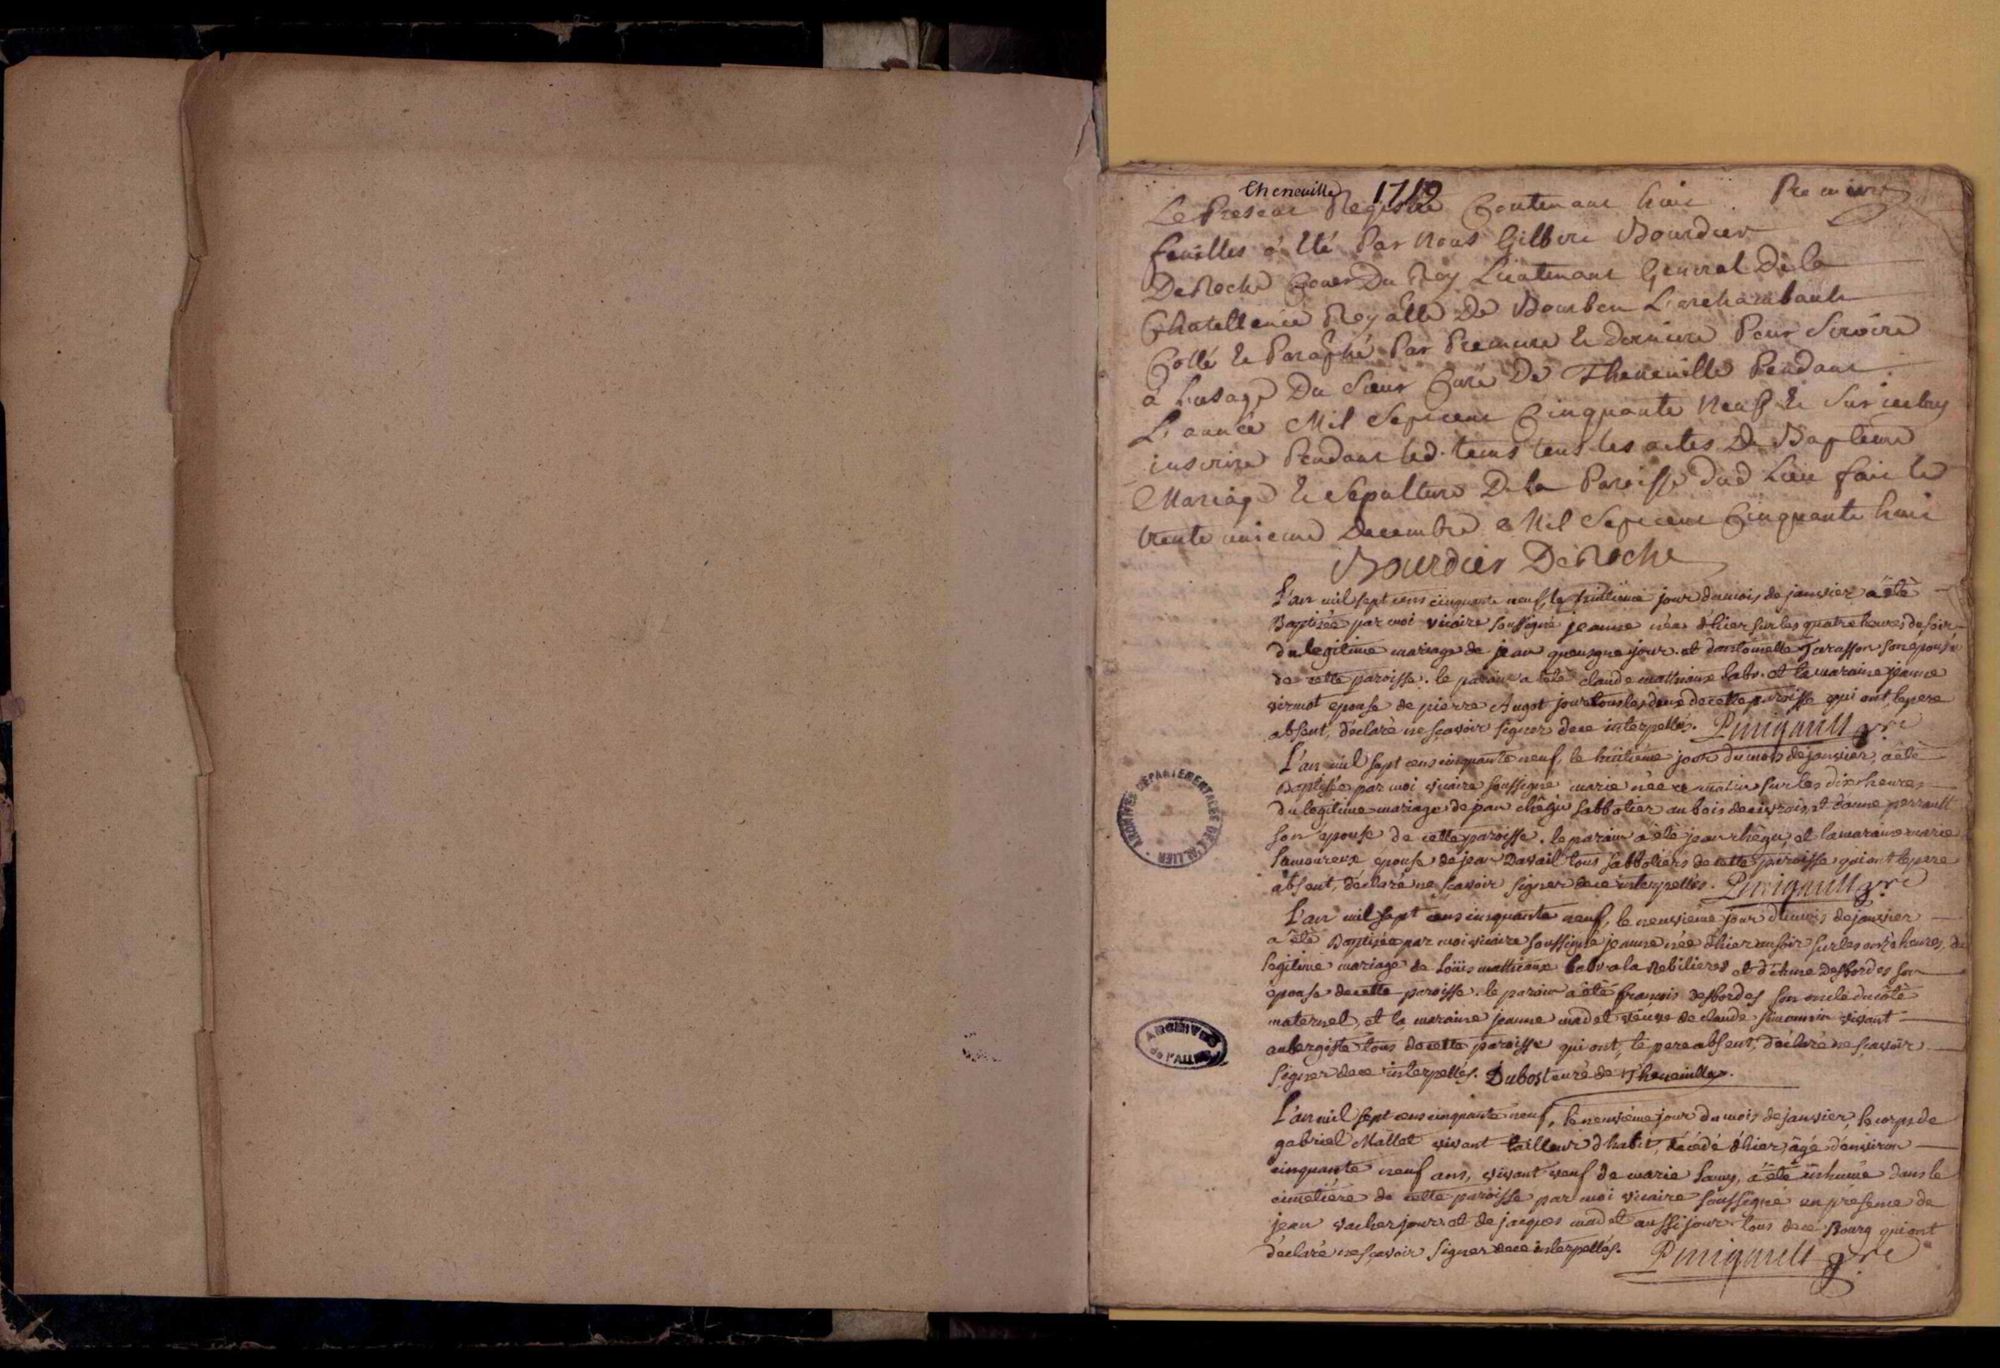 Theneuille 1759
Premiere
Le Present Registre Contenant huit
feuilles a été Par Nous Gilbert Bourdier
DeRoche Coner Du Roy Lieutenant General De la
Chatellenie Royalle De Bourbon L'archambault
Cotté et Paraphé Par Premiere et derniere Pour Servire
a L'usage Du Sieur Curé De Theneuille Pendant
L'année Mil Sept cent Cinquante Neuf et Sur icelluy
inscrire Pendant led. tems tous les actes De Bapteme
Mariage et Sepulture De la Paroisse dud Lieu fait le
trente unieme Decembre Mil Sept cent Cinquante huit
Bourdier DeRoche
L'an mil sept cens cinquante neuf, le huitieme jour du mois de janvier a été
Baptisée par moi vicaire soussigné jeanne née d'hier sur les quatre heures du soir
du legitime mariage de jean jour. et d'antoinette Tarasson son epouse
de cette paroisse. le parain a été claude mathieux labr. et la maraine jeanne
virmot epouse de pierre Augot jour tous les deux de cette paroisse qui ont, le pere
absent, déclaré ne scavoir signer de ce interpellés.
L'an mil sept cens cinquante neuf, le huitieme jour du mois de janvier, a été
Baptisée par moi vicaire soussigné marie née ce matin sur les dix heures
du legitime mariage de jean chégu sabbotier au bois de civrais, et d'anne perrault
son epouse de cette paroisse. le parain a été jean chégu, et la maraine marie
Lamoureux epouse de jean Davail tous sabbotiers de cette paroisse qui ont le pere
absent, déclaré ne scavoir signer de ce interpellés.
L'an mil sept cens cinquante neuf, le neuvieme jour du mois de janvier
a été Baptisée par moi vicaire soussigné jeanne née d'hier au soir sur les onze heures, du
legitime mariage de Loüis mathieux labr a la Rebilieres et d'etienne Desbordes son
epouse de cette paroisse. le parain a été francois desbordes son oncle du côté
maternel, et la maraine jeanne madet veuve de claude simonnin vivant
aubergiste tous de cette paroisse qui ont, le pere absent, déclaré ne scavoir
signer de ce interpellés. Dubost curé de Theneuille.
L'an mil sept cens cinquante neuf, le neuvieme jour du mois de janvier, le corps de
gabriel Mallet vivant tailleur d'habit, décédé d'hier, âgé d'environ
cinquante neuf ans, vivant veuf de marie Lamy, a été inhumé dans le
cimetière de cette paroisse par moi vicaire soussigné en présence de
jean vacher jour. et de jacques madet aussi jour. tous de ce Bourg qui ont
déclaré ne scavoir signer de ce interpellés.
ARCHIVES DEPARTEMENTALES DE L'ALLIER
ARCHIVES
DE L'ALLIER